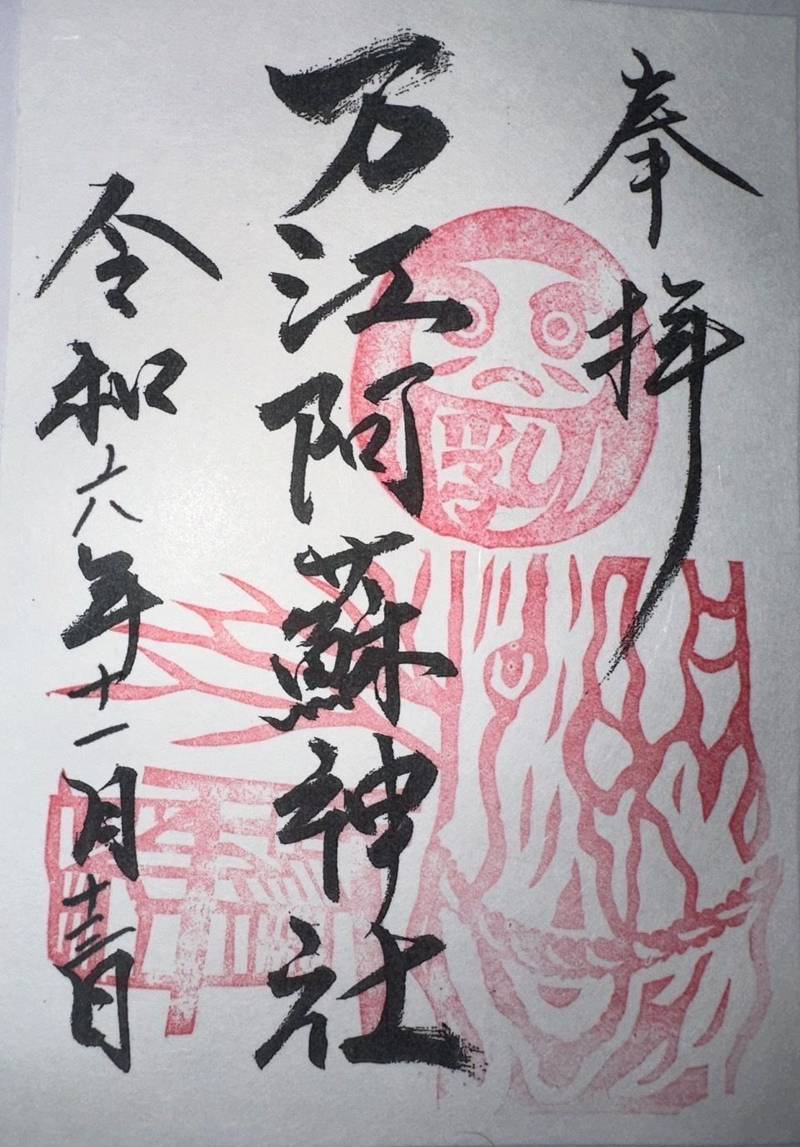 奉拝
万江阿蘇神社
令和六年十一月十三日